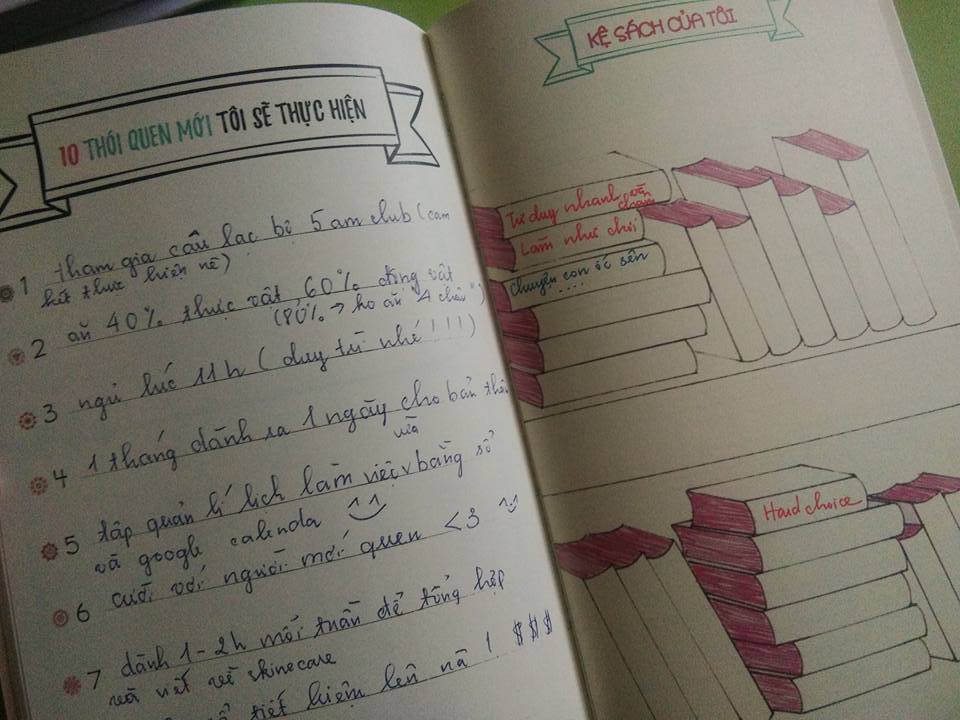 10 THÓI QUEN MỚI TÔI SẼ THỰC HIỆN
1 tham gia câu lạc bộ 5 am club (cam
kết thực hiện nè)
2 ăn 40% thực vật, 60% động vật
(80% → ho ăn "4 chân")
3 ngủ lúc 11h (duy từ nhé!!!)
4 1 tháng dành ra 1 ngày cho bản thân
5 tập quản lí lịch làm việc vừa bằng sổ
và google calenda
6 cười với người mới quen <3
7 dành 1-2h mỗi tuần để tổng hợp
và viết về skincare
tiết kiệm lên nà! $$$
KỆ SÁCH CỦA TÔI
Tư duy nhanh và
chậm
Làm như chơi
Chuyện con ốc sên
....
Hard choice